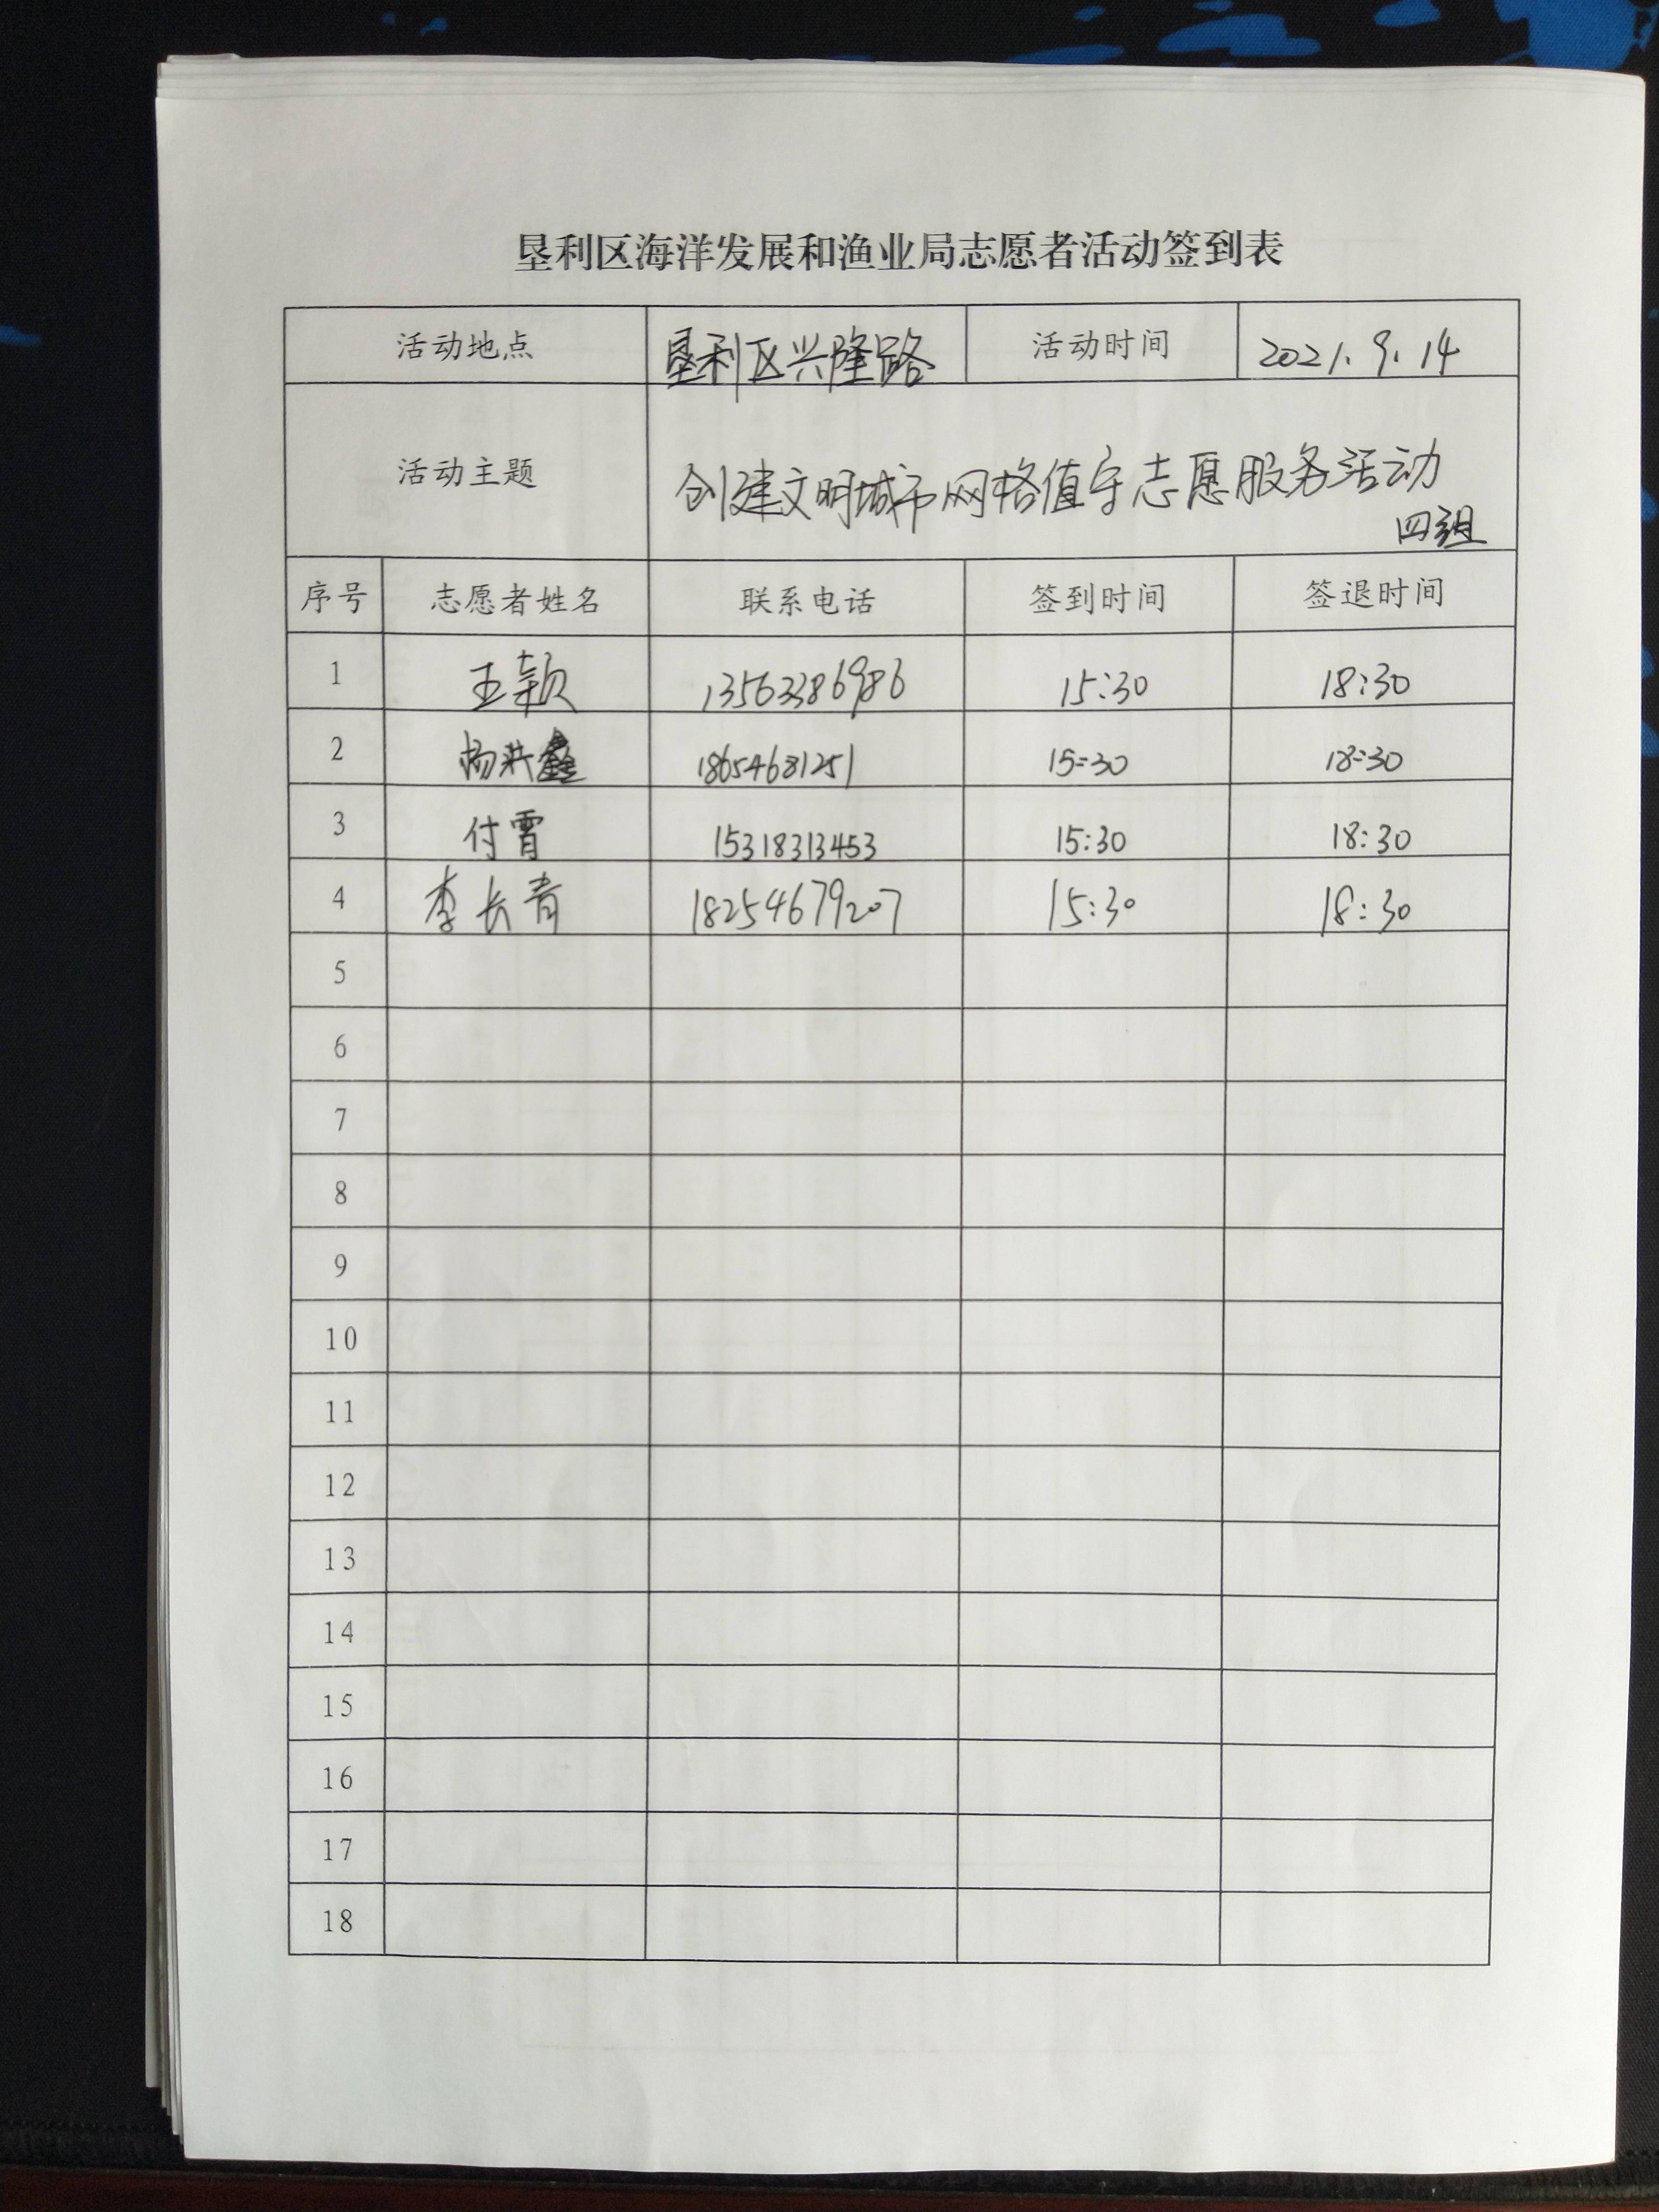 垦利区海洋发展和渔业局志愿者活动签到表
活动地点 垦利区兴隆路 活动时间 2021.9.14
活动主题 创建文明城市网格值守志愿服务活动
四组
序号 志愿者姓名 联系电话 签到时间 签退时间
1 王颖 13563386986 15:30 18:30
2 杨洪鑫 18654681251 15:30 18:30
3 付霄 15318313453 15:30 18:30
4 李长青 18254679207 15:30 18:30
5
6
7
8
9
10
11
12
13
14
15
16
17
18